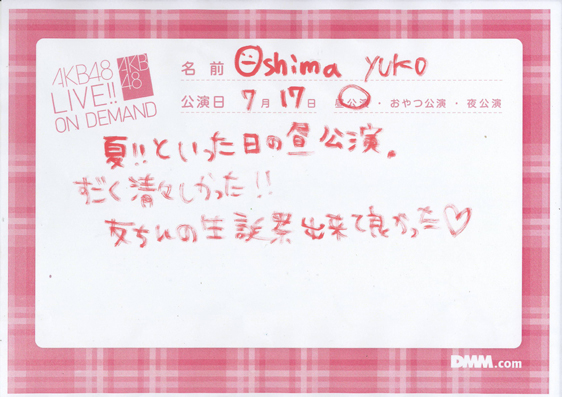 AKB48
LIVE!!
ON DEMAND
AKB
48
名前 Oshima YUKO
公演日 7月17日 昼公演・おやつ公演・夜公演
夏!!といった日の昼公演。
すごく清々しかった!!
友ちんの生誕祭出来て良かった♡
DMM.com